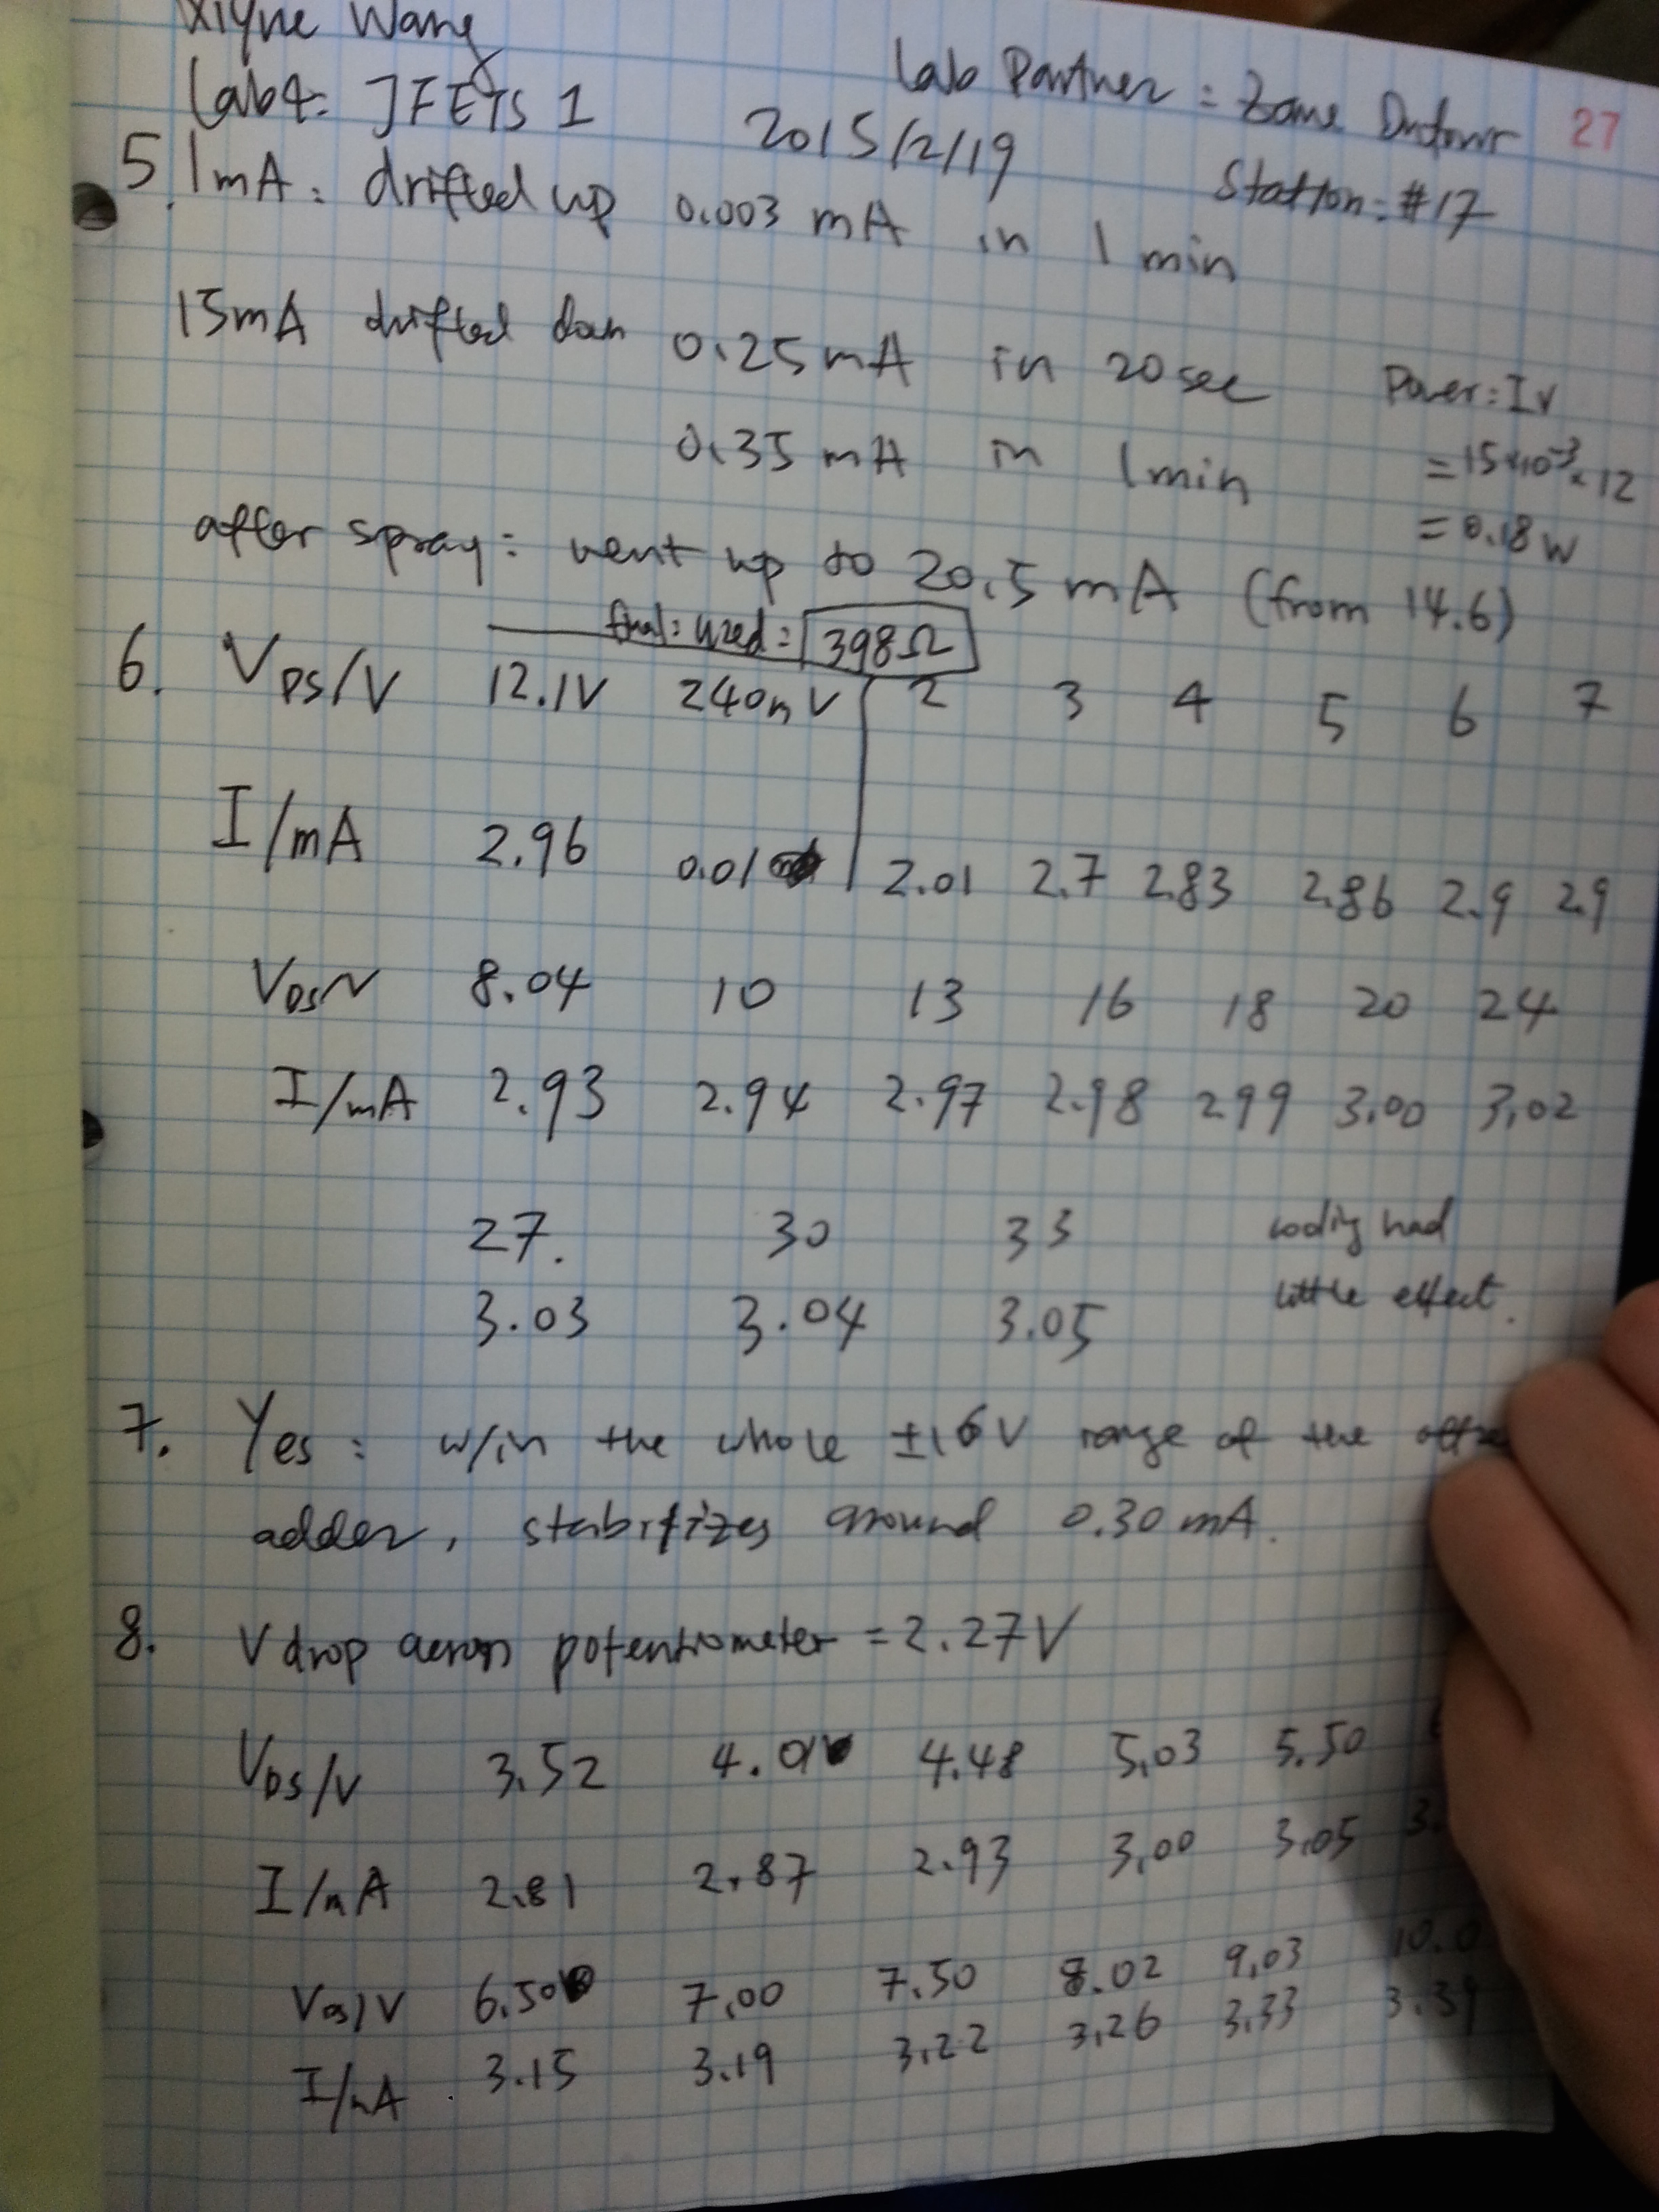 Xiyue Wang
Lab Partner = Zane
Lab4: JFETS 1
2015/2/19
27
Station: #17
5. 1mA: drifted up 0.003 mA in 1 min
15mA drifted down 0.25mA in 20sec
0.35 mA in 1min
Power: IV
= 15×10⁻³×12
= 0.18W
after spray: went up to 20.5 mA (from 14.6)
final: used: 398Ω
6. VDS/V 12.1V 240mV 2 3 4 5 6 7
I/mA 2.96 0.01 2.01 2.7 2.83 2.86 2.9 2.9
VDS/V 8.04 10 13 16 18 20 24
I/mA 2.93 2.94 2.97 2.98 2.99 3.00 3.02
27. 30 33
3.03 3.04 3.05
cooling had
little effect.
7. Yes: w/in the whole ±16V range of the
adder, stabilizes around 0.30 mA.
8. V drop across potentiometer = 2.27V
VDS/V 3.52 4.01 4.48 5.03 5.50
I/mA 2.81 2.87 2.93 3.00 3.05 3.
VDS/V 6.50 7.00 7.50 8.02 9.03 10.0
I/mA 3.15 3.19 3.22 3.26 3.33 3.39